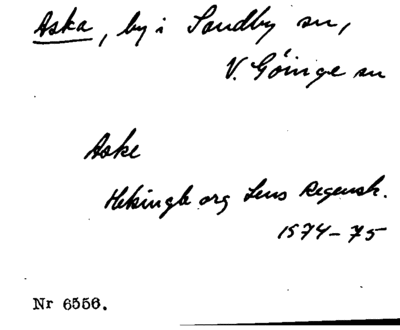 Aska, by i Sandby sn,
V. Göinge sn
Aske
Helsingb. org Lens Regensk.
1574-75
Nr 6556.